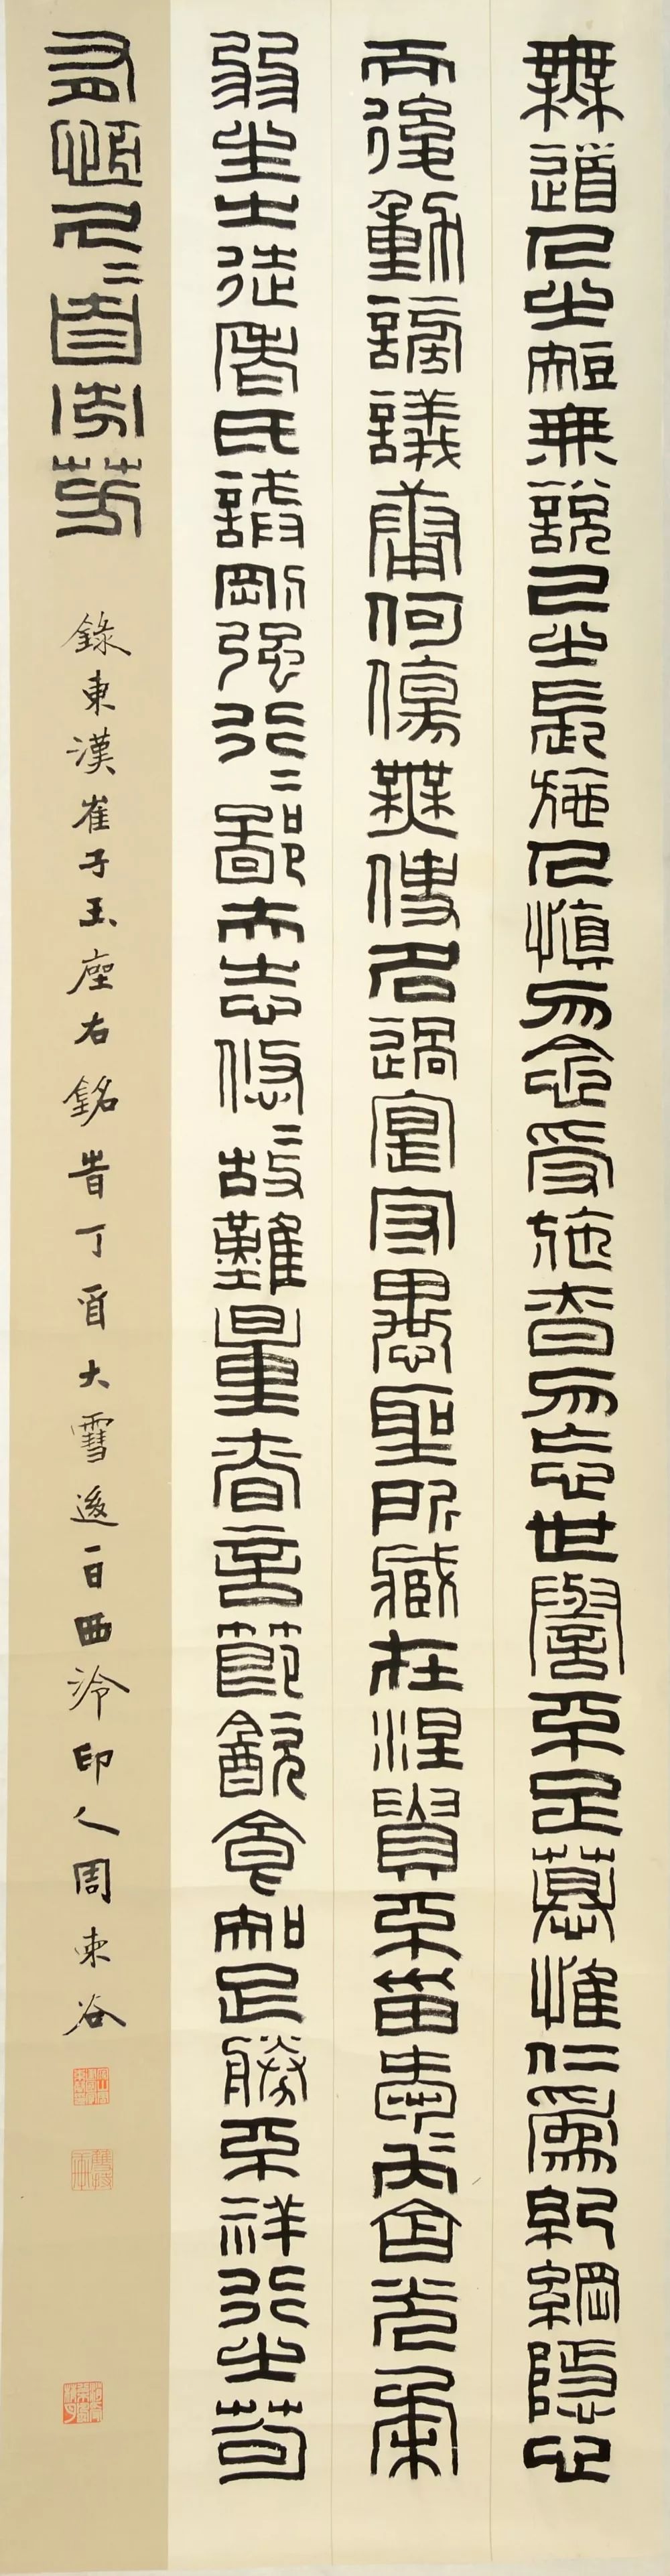 無道人之短無說己之長施人慎勿念受施昚勿忘世譽不足慕惟仁為紀綱隱心
而後動謗議庸何傷無使名過實守愚聖所臧在涅貴不甾㤅〻內含光柔
弱生之徒老氏誡剛強行〻鄙夫志悠〻故難量昚言節飲食知足勝不祥行之苟
有恆久〻自芬芳
錄東漢崔子玉座右銘旹丁酉大雪後一日西泠印人周東谷